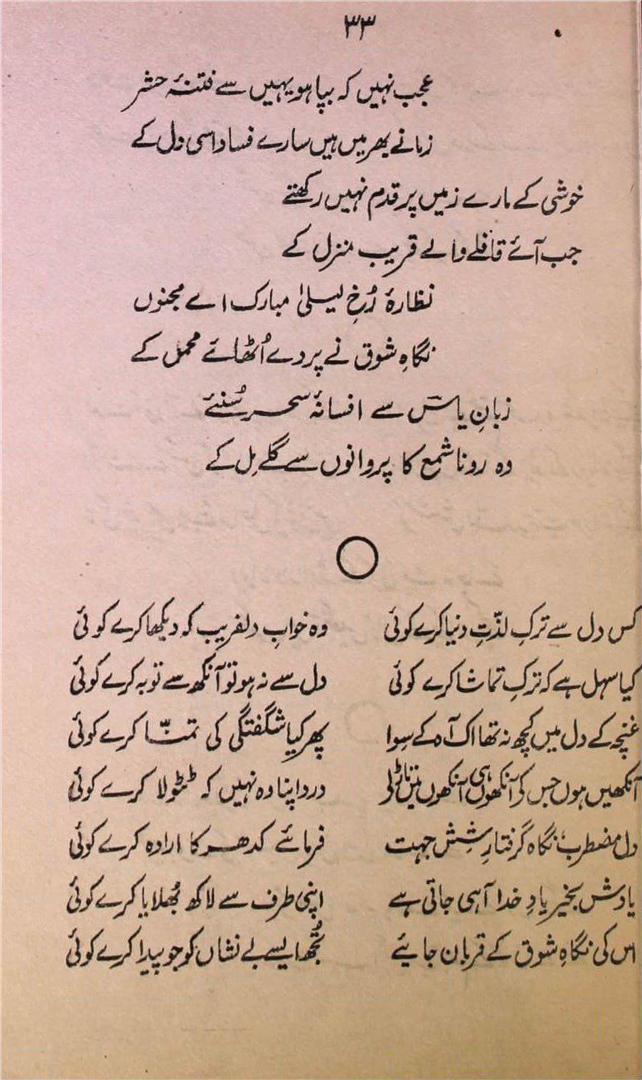 ۳۳
عجب نہیں کہ بپا ہو یہیں سے فتنۂ حشر
زمانے بھر میں ہیں سارے فساد اسی دل کے
خوشی کے مارے زمیں پر قدم نہیں رکھتے
جب آئے قافلے والے قریب منزل کے
نظارۂ رُخِ لیلیٰ مبارک اے مجنوں
نگاہِ شوق نے پردے اُٹھائے محمل کے
زبانِ یاسؔ سے افسانۂ سحر سُنئے
وہ رونا شمع کا پروانوں سے گلے مِل کے
کس دل سے ترکِ لذّتِ دنیا کرے کوئی وہ خوابِ دلفریب کہ دیکھا کرے کوئی
کیا سہل ہے کہ ترکِ تماشا کرے کوئی دل سے نہ ہو تو آنکھ سے توبہ کرے کوئی
غنچہ کے دل میں کچھ نہ تھا اک آہ کے سِوا پھر کیا شگفتگی کی تمنّا کرے کوئی
آنکھیں ہوں جس کی آنکھوں ہی آنکھوں میں تاڑ لے درد اپنا وہ نہیں کہ ٹٹولا کرے کوئی
دل مضطرب نگاہ گرفتارِ شِش جہت فرمائے کدھر کا ارادہ کرے کوئی
یادش بخیر یادِ خدا آ ہی جاتی ہے اپنی طرف سے لاکھ بُھلایا کرے کوئی
اس کی نگاہِ شوق کے قربان جایئے تُجھ ایسے بے نشاں کو جو پیدا کرے کوئی